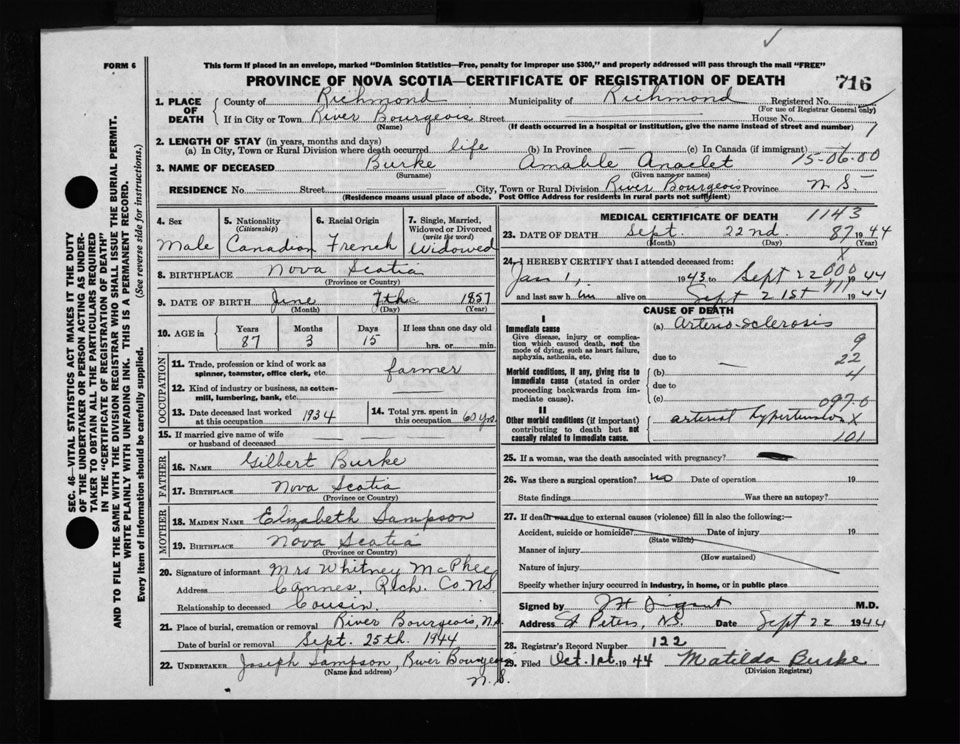 FORM 6
This form if placed in an envelope, marked "Dominion Statistics—Free, penalty for improper use $300," and properly addressed will pass through the mail "FREE"
PROVINCE OF NOVA SCOTIA—CERTIFICATE OF REGISTRATION OF DEATH
716
1. PLACE OF DEATH
County of Richmond Municipality of Richmond Registered No.
(For use of Registrar General only)
If in City or Town River Bourgeois Street House No.
(Name) (If death occurred in a hospital or institution, give the name instead of street and number)
2. LENGTH OF STAY (in years, months and days)
(a) In City, Town or Rural Division where death occurred life (b) In Province — (c) In Canada (if immigrant)
3. NAME OF DECEASED Burke Amable Anaclet 15-06-00
(Surname) (Given name or names)
RESIDENCE No. Street City, Town or Rural Division River Bourgeois Province N.S.
(Residence means usual place of abode. Post Office Address for residents in rural parts not sufficient)
SEC. 46—VITAL STATISTICS ACT MAKES IT THE DUTY
OF THE UNDERTAKER OR PERSON ACTING AS UNDER-
TAKER TO OBTAIN ALL THE PARTICULARS REQUIRED
IN THE "CERTIFICATE OF REGISTRATION OF DEATH"
AND TO FILE THE SAME WITH THE DIVISION REGISTRAR WHO SHALL ISSUE THE BURIAL PERMIT.
WRITE PLAINLY WITH UNFADING INK. THIS IS A PERMANENT RECORD.
Every item of information should be carefully supplied. (See reverse side for instructions.)
4. Sex
Male
5. Nationality
(Citizenship)
Canadian
6. Racial Origin
French
7. Single, Married, Widowed or Divorced
(write the word)
Widowed
8. BIRTHPLACE Nova Scotia
(Province or Country)
9. DATE OF BIRTH June 7th 1857
(Month) (Day) (Year)
10. AGE in
Years Months Days If less than one day old
87 3 15 hrs. or min.
OCCUPATION
11. Trade, profession or kind of work as
spinner, teamster, office clerk, etc. farmer
12. Kind of industry or business, as cotton-
mill, lumbering, bank, etc.
13. Date deceased last worked
at this occupation 1934
14. Total yrs. spent in
this occupation 60 yrs.
15. If married give name of wife
or husband of deceased
FATHER
16. NAME Gilbert Burke
17. BIRTHPLACE Nova Scotia
(Province or Country)
MOTHER
18. MAIDEN NAME Elizabeth Sampson
19. BIRTHPLACE Nova Scotia
(Province or Country)
20. Signature of informant Mrs Whitney McPhee
Address Cannes, Rich. Co. N.S.
Relationship to deceased Cousin.
21. Place of burial, cremation or removal River Bourgeois, N.S.
Date of burial or removal Sept. 25th. 1944
22. UNDERTAKER Joseph Sampson, River Bourgeois
(Name and address) N.S.
MEDICAL CERTIFICATE OF DEATH 1143
23. DATE OF DEATH Sept. 22nd. 87 1944
(Month) (Day) (Year)
24. I HEREBY CERTIFY that I attended deceased from:
X
000
Jan 1, 1943 to Sept 22 1944
and last saw him alive on Sept 21st 1944
CAUSE OF DEATH
I
Immediate cause
Give disease, injury or complica-
tion which caused death, not the
mode of dying, such as heart failure,
asphyxia, asthenia, etc.
(a) Arterio-sclerosis
9
due to 22
Morbid conditions, if any, giving rise to
immediate cause (stated in order
proceeding backwards from im-
mediate cause).
(b) 4
due to
(c) 097-0
II
Other morbid conditions (if important)
contributing to death but not
causally related to immediate cause.
arterial hypertension X
101
25. If a woman, was the death associated with pregnancy?
26. Was there a surgical operation? no Date of operation 19
State findings Was there an autopsy?
27. If death was due to external causes (violence) fill in also the following:—
Accident, suicide or homicide? Date of injury 19
(State which)
Manner of injury
(How sustained)
Nature of injury
Specify whether injury occurred in industry, in home, or in public place
Signed by M.D.
Address St Peters, N.S. Date Sept 22 1944
28. Registrar's Record Number 122
29. Filed Oct. 1st. 1944 Matilda Burke
(Division Registrar)